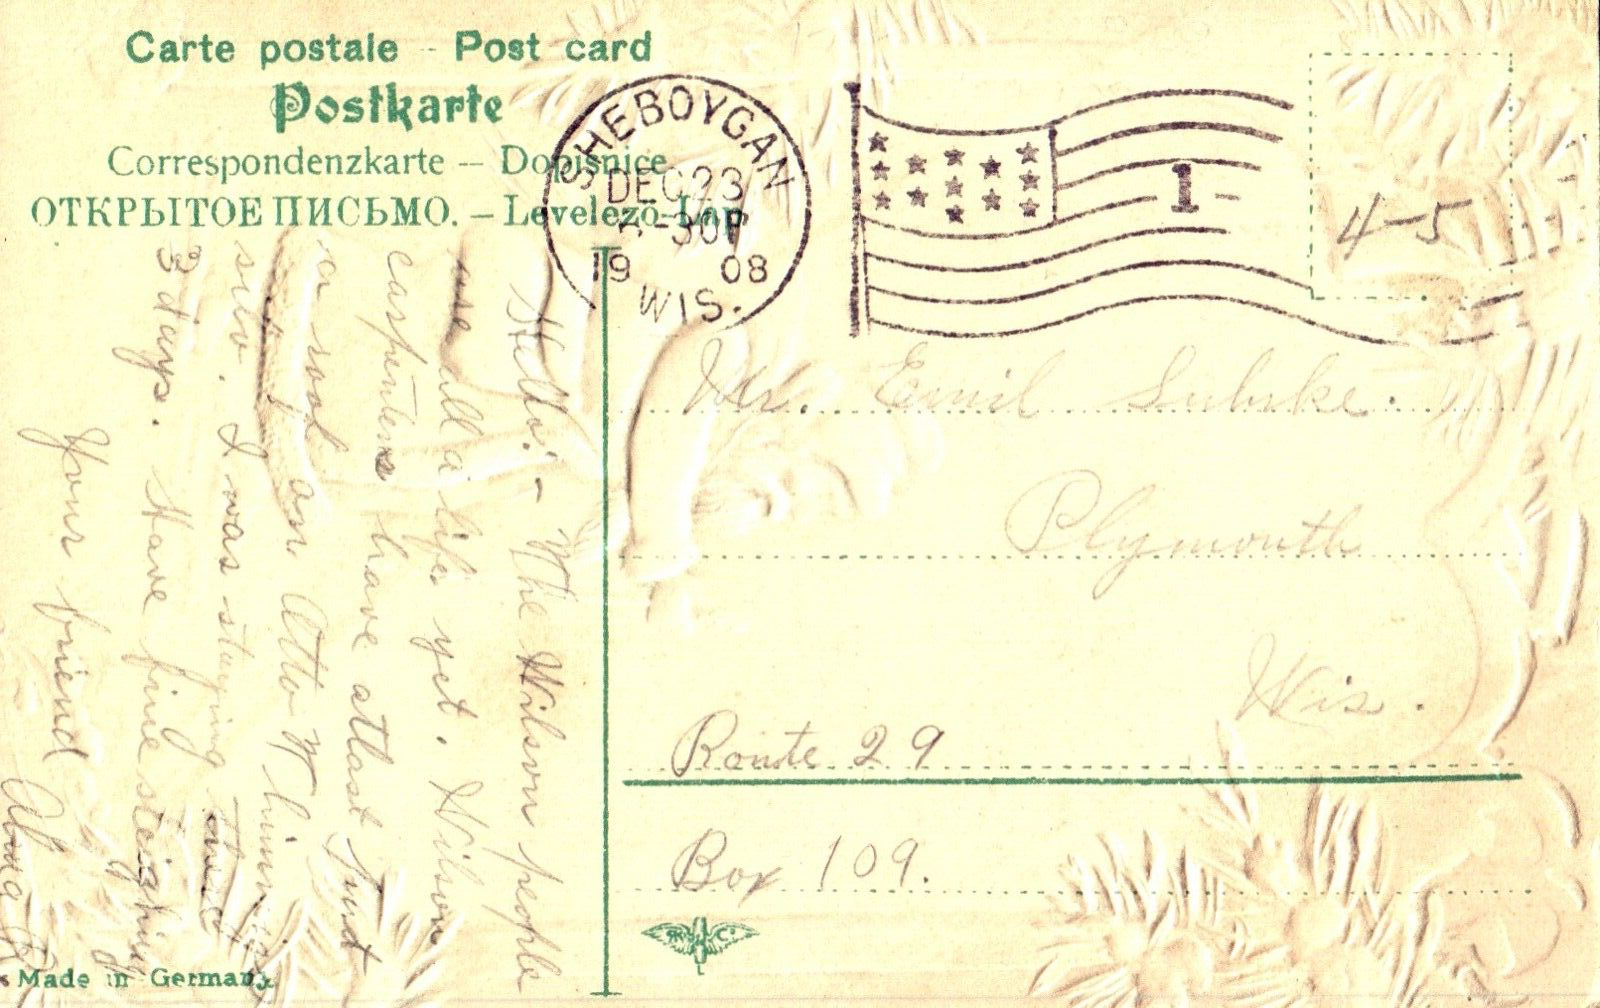 Carte postale - Post card
Postkarte
Correspondenzkarte — Dopisnice
ОТКРЫТОЕ ПИСЬМО. — Levelezö-Lap
SHEBOYGAN
DEC 23
-30P
19 08
WIS.
1
4-5
Mr. Emil Luhrke.
Plymouth
Wis.
Route 29
Box 109.
Hello:- The Wilson people
are all alife yet. Wilson
carpenters have atlast put
a roof on Otto W
silo. I was staying there
3 days. Have fine sleighing
Your friend Alma R
Made in Germany.